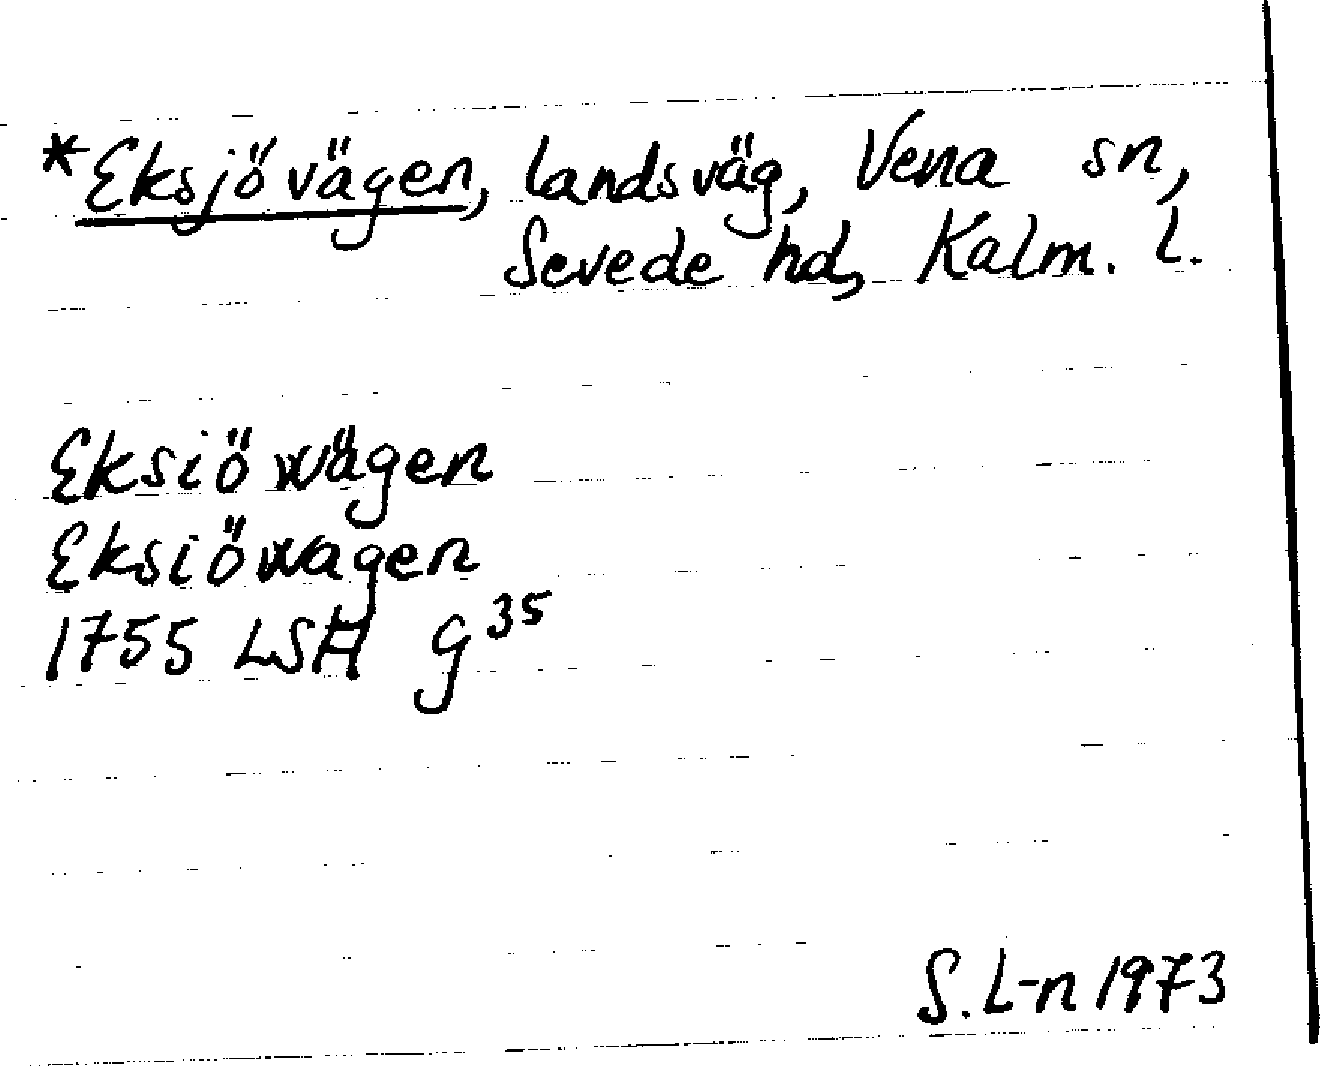 *Eksjövägen, landsväg, Vena sn,
Sevede hd, Kalm. l.
Eksiö wägen
Eksiöwagen
1755 LSH g35
S. L-n 1973